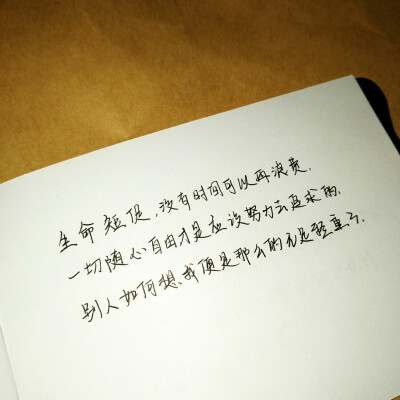 生命短促,没有时间可以再浪费,
一切随心自由才是应该努力去追求的,
别人如何想,我便是那么的无足轻重了.